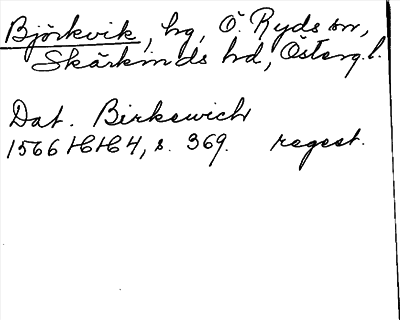 Björkvik, hg, Ö. Ryds sn,
Skärkinds hd, Österg.l.
Dat. Birkewich
1566 HH 4, s. 369. regest.